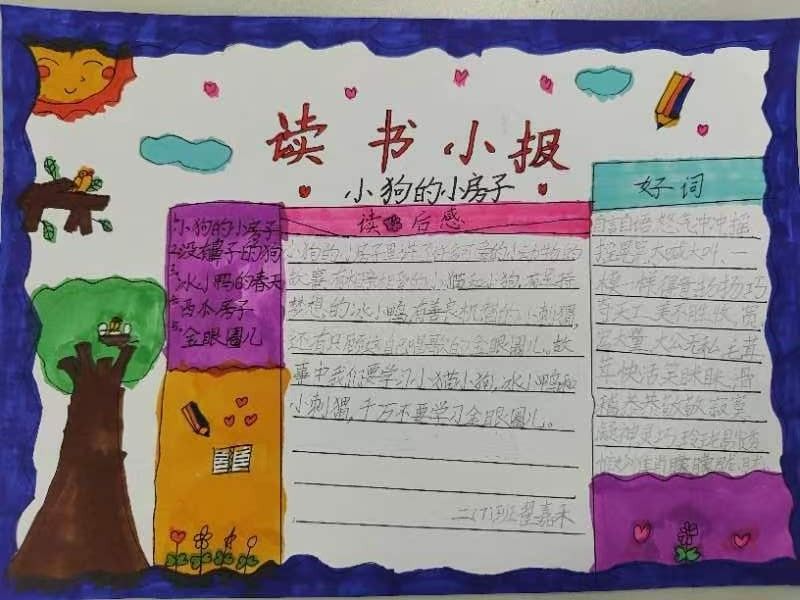 读书小报
小狗的小房子
1.小狗的小房子
2.没鼻子的狗
3.冰小鸭的春天
4.西瓜房子
5.金眼圈儿
读后感
小狗的小房子里讲了许多可爱的小动物的
故事。有相亲相爱的小猫和小狗,有坚持
梦想的冰小鸭,有善良机智的小刺猬,
还有只顾自己唱歌的金眼圈儿。故
事中我们要学习小猫小狗,冰小鸭和
小刺猬,千万不要学习金眼圈儿。
二(7)班 嘉禾
好词
自言自语 怒气冲冲 摇
摇晃晃 大喊大叫 一
模一样 得意扬扬 巧
夺天工 美不胜收 宽
宏大量 大公无私 毛茸
茸 快活 笑眯眯 滑
稽 恭恭敬敬 寂寞
凝神 灵巧
惟妙惟肖 朦朦胧胧